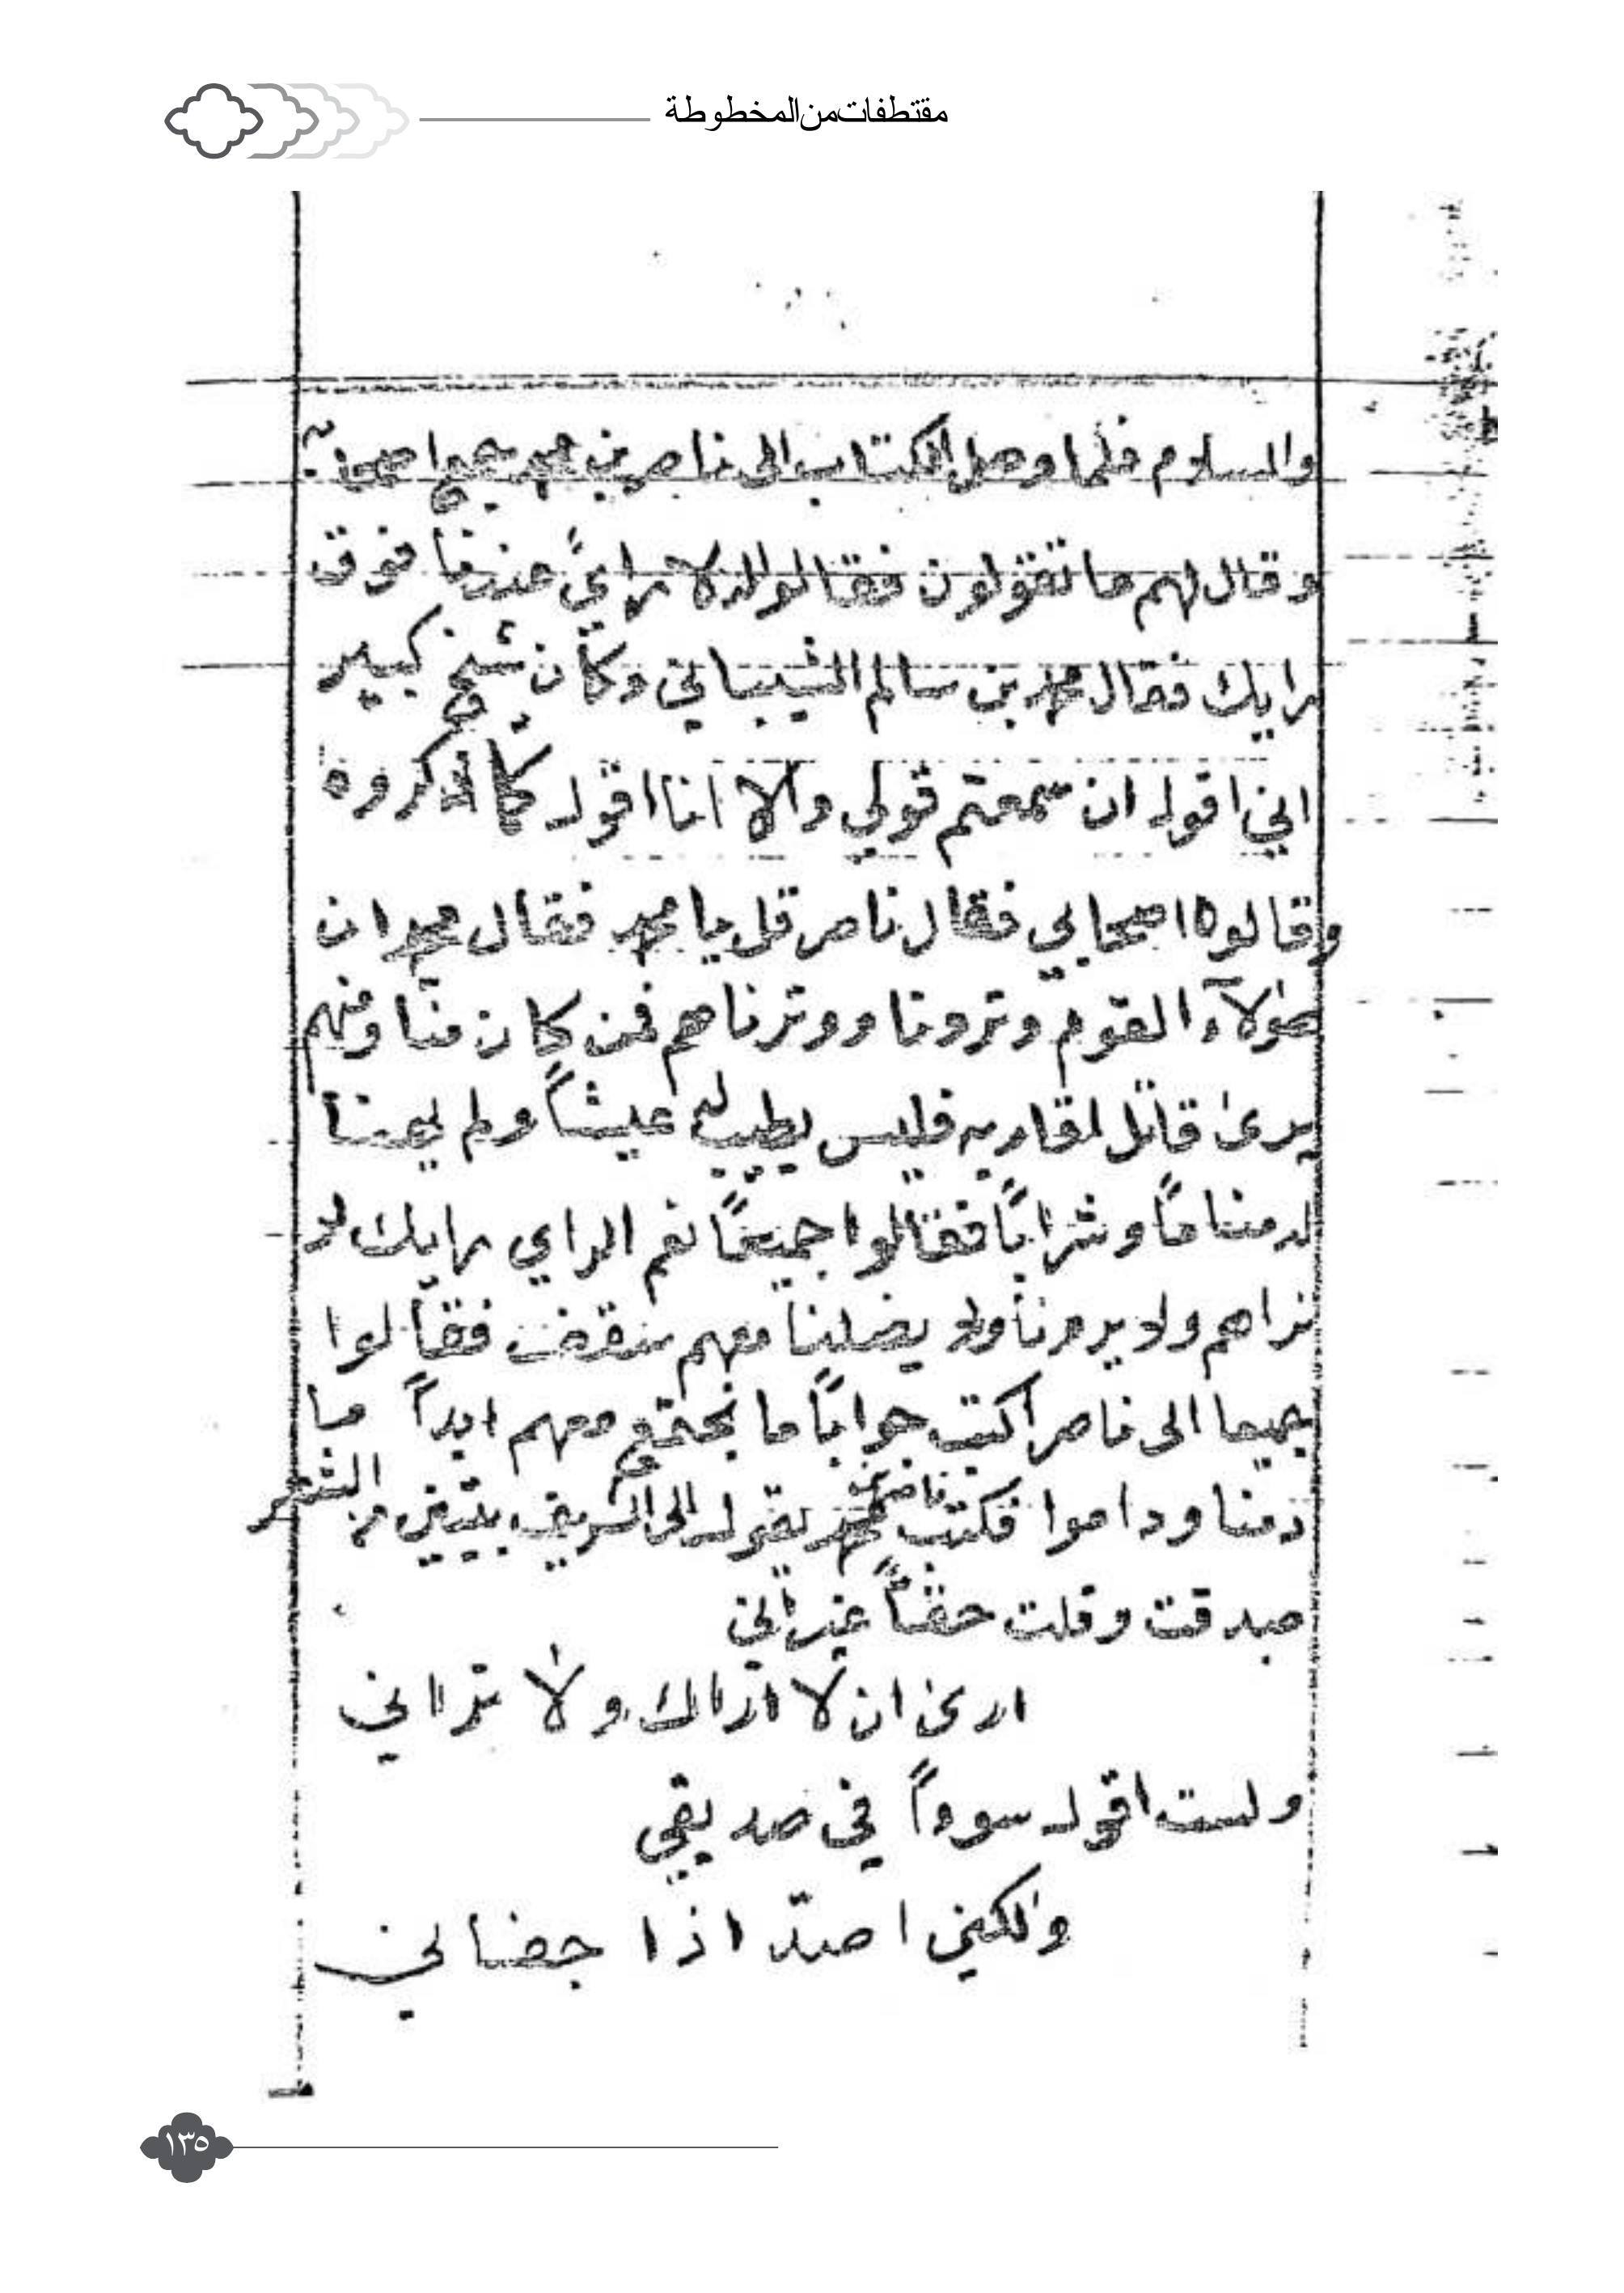 مقتطفات من المخطوطة
والسلام فلما وصل الكتاب الى ناصر بن محمد جمع اصحابه
وقال لهم ما تقولون فقالوا له لا راي عندنا فوق
رايك فقال محمد بن سالم الشيباني وكان شيخ كبير
اني اقول ان سمعتم قولي والا انا اقول كما ذكروه
وقالوه اصحابي فقال ناصر قل يا محمد فقال محمد ان
هولاء القوم وترونا ووترناهم فمن كان منا ومنهم
يرى قاتل اقاربه فليس يطيب له عيشاً ولم يهنا
له مناماً وشراباً فقالوا جميعاً نعم الراي رايك لا
نراهم ولا يرونا ولا يضلنا معهم سقف فقالوا
جميعا الى ناصر اكتب جواباً ما نجتمع معهم ابداً ما
دمنا وداموا فكتب ناصر بن محمد يقول الى الشريف بيتين من الشعر
صدقت وقلت حقاً غير اني
ارى ان لا اراك ولا تراني
ولست اقول سوءاً في صديقي
ولكني اصد اذا جفاني
١٣٥